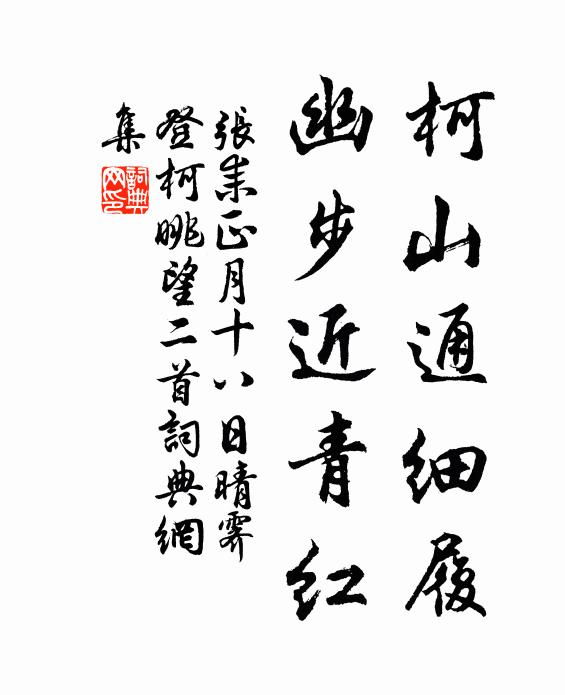 柯山通細履
幽步近青紅
張耒正月十八日晴霽
登柯眺望二首詞典網
集
詞典
网印